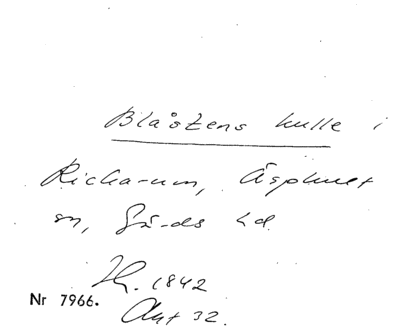 Blåstens kulle i
Rickarum, Äsphult
sn, Gärds hd.
Th. 1842
Nr 7966.
Ant 32.